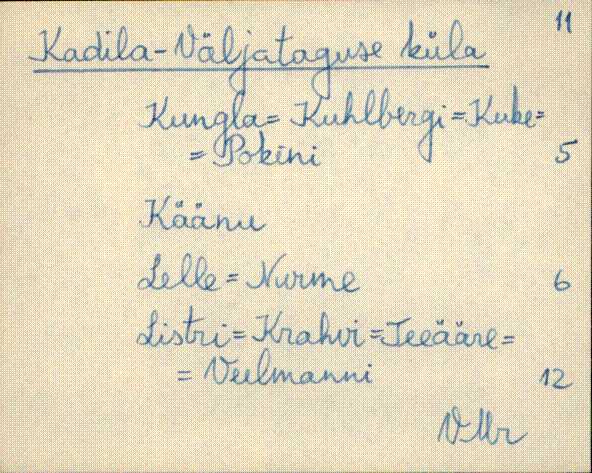 11
Kadila-Väljataguse küla
Kungla = Kuhlbergi = Kuke =
= Pokini 5
Käänu
Lelle = Nurme 6
Listri = Krahvi = Teeääre =
= Veelmanni 12
VMr